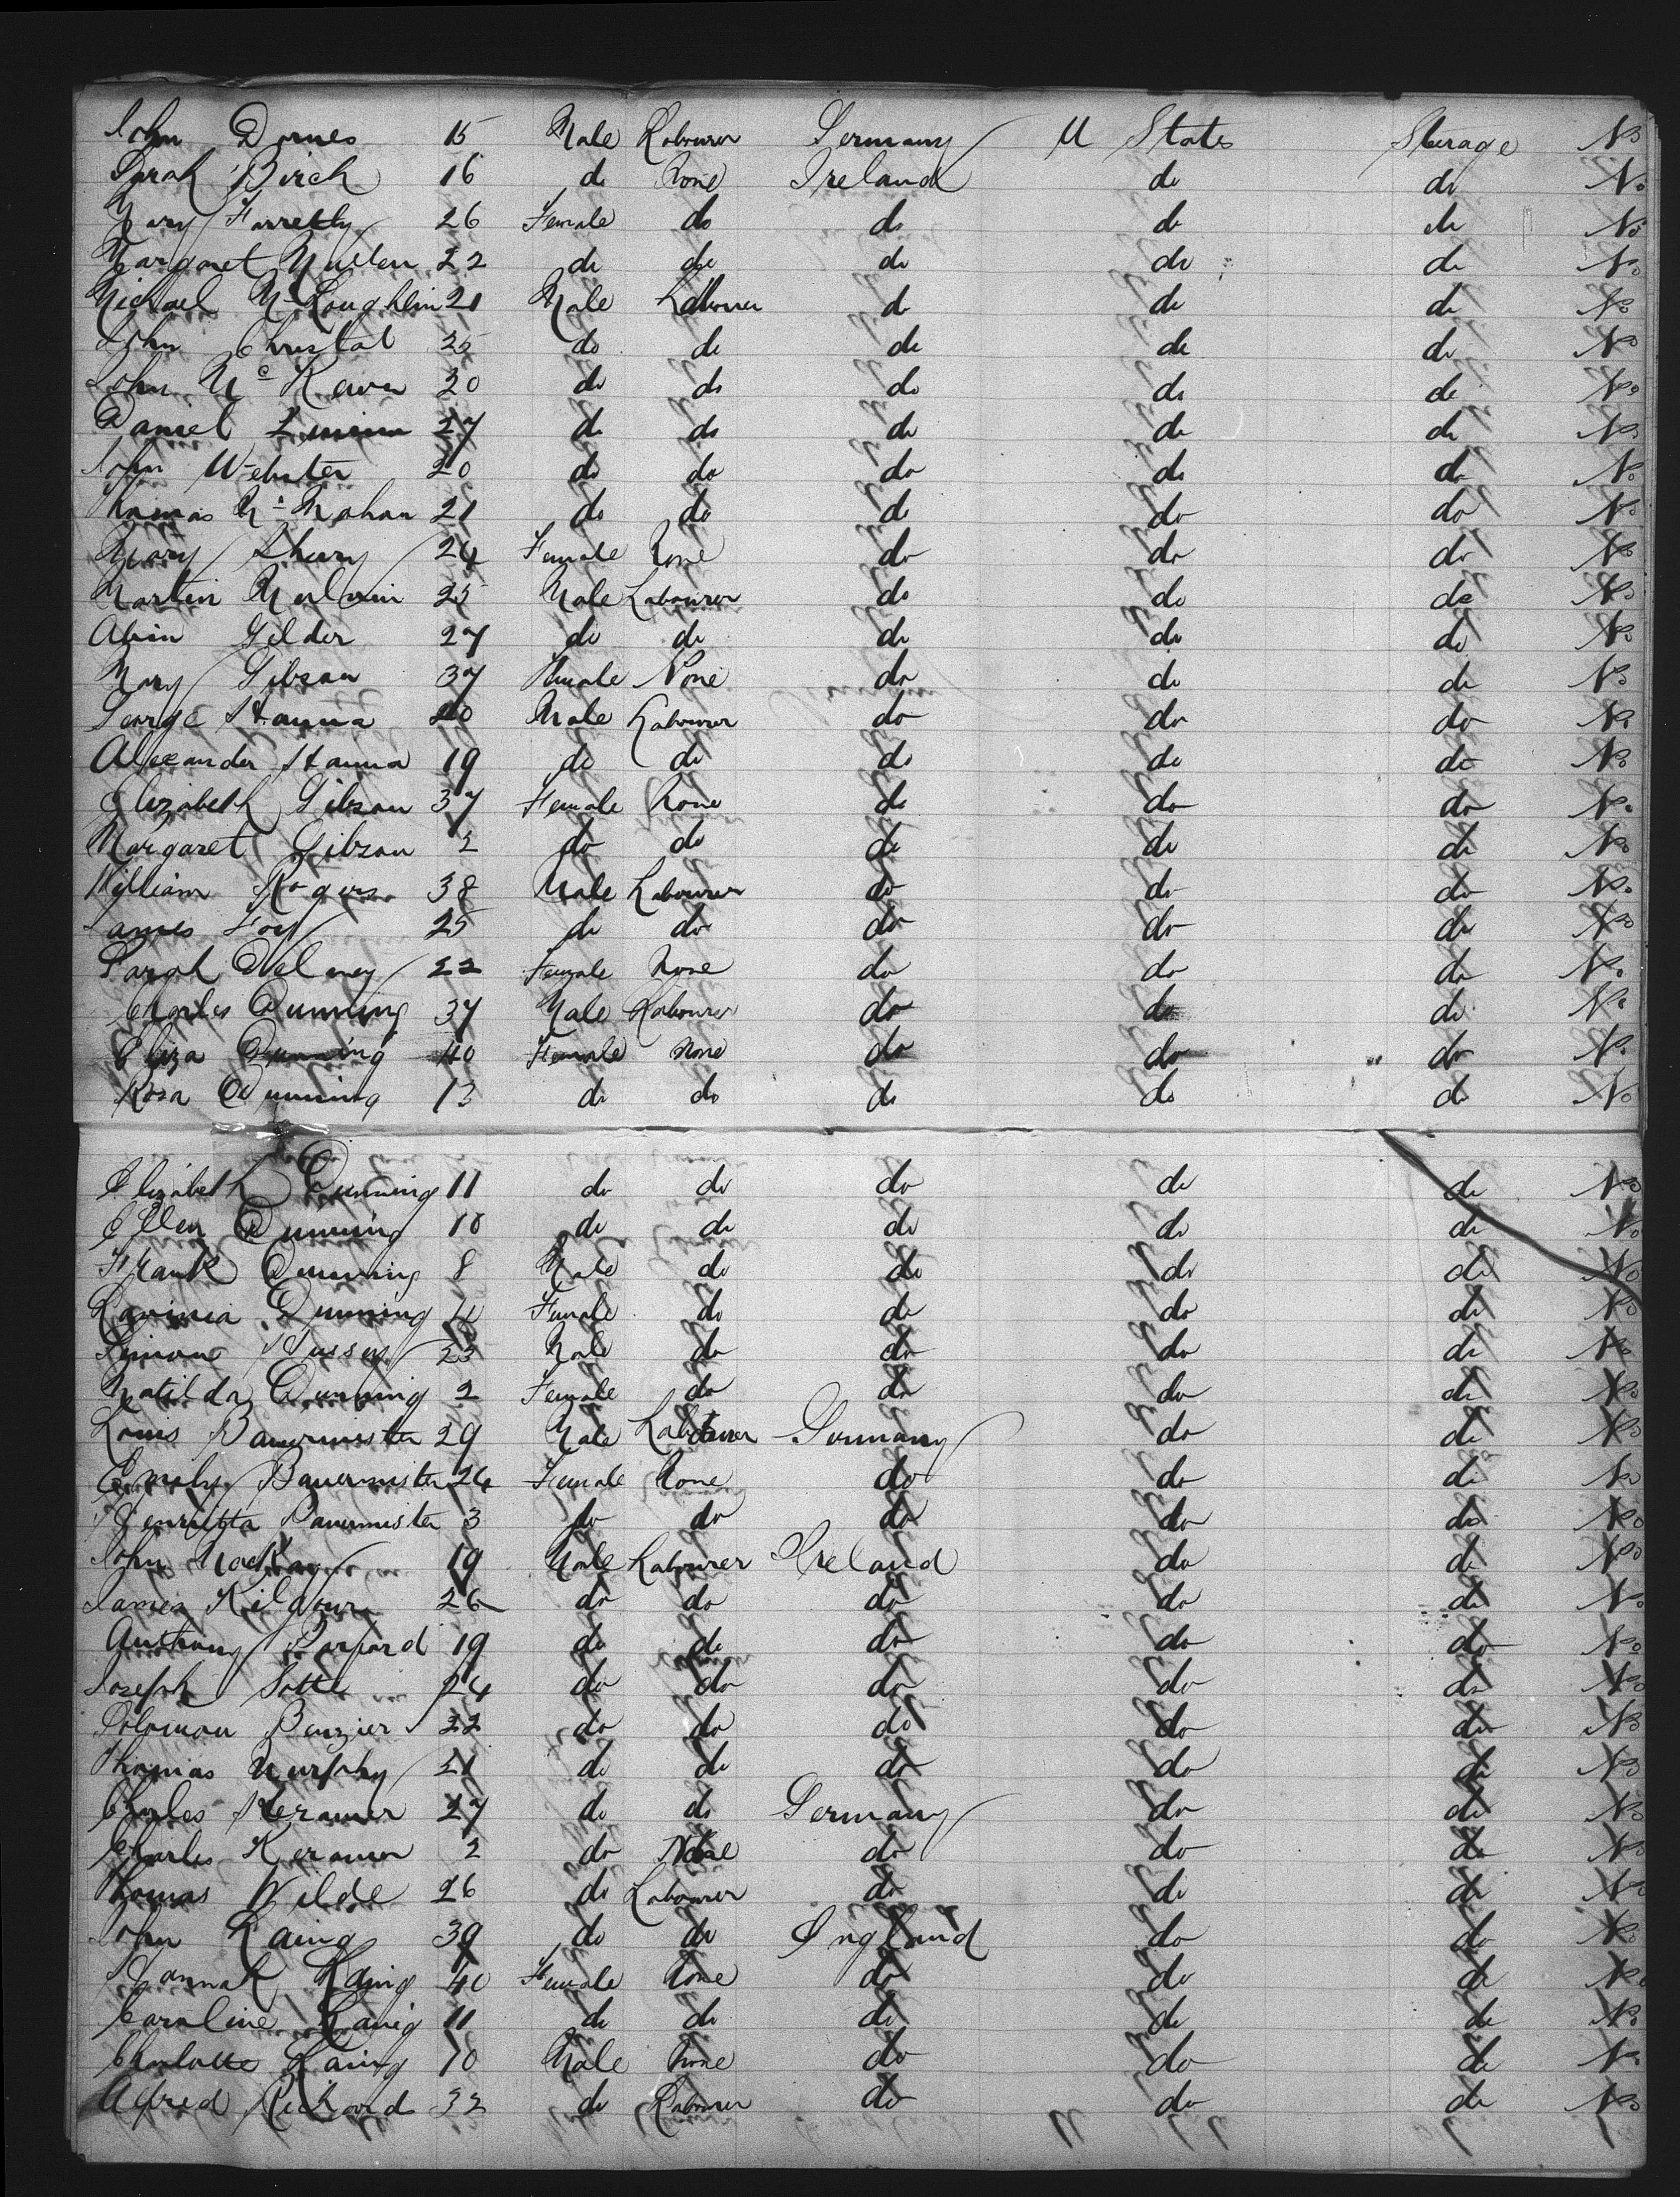 John Dornes 15 Male Labourer Germany U States Sterage No
Sarah Birch 16 do None Ireland do do No
Mary Farrelly 26 Female do do do do No
Margaret Mullen 22 do do do do do No
Michael McLoughlin 21 Male Labourer do do do No
John Christal 25 do do do do do No
John Mc Keown 20 do do do do do No
Daniel 27 do do do do do No
John Webster 20 do do do do do No
Thomas McMahon 21 do do do do do No
Mary Sherry 24 Female None do do do No
Martin Mulvin 25 Male Labourer do do do No
Gilder 27 do do do do do No
Mary Gibson 37 Female None do do do No
George Hanna 20 Male Labourer do do do No
Alexander Hanna 19 do do do do do No
Elizabeth Gibson 37 Female None do do do No
Margaret Gibson 2 do do do do do No
William Rogers 38 Male Labourer do do do No
James Foy 25 do do do do do No
Sarah Delmey 22 Female None do do do No
Charles Dunning 37 Male Labourer do do do No
Eliza Dunning 40 Female None do do do No
Rosa Dunning 13 do do do do do No
Elizabeth Dunning 11 do do do do do No
Ellen Dunning 10 do do do do do No
Frank Dunning 8 Male do do do do No
Lavinia Dunning 4 Female do do do do No
Simone Hussey 23 Male do do do do No
Matilda Dunning 2 Female do do do do No
Louis Bauermister 29 Male Labourer Germany do do No
Emely Bauermister 24 Female None do do do No
Henrietta Bauermister 3 do do do do do No
John Mackay 19 Male Labourer Ireland do do No
James Kilgour 26 do do do do do No
Anthony 19 do do do do do No
Joseph Sotte 24 do do do do do No
Solomon Benzier 22 do do do do do No
Thomas Murphy 21 do do do do do No
Charles Keramer 27 do do Germany do do No
Charles Keramer 2 do None do do do No
Thomas Wilde 26 do Labourer do do do No
John Laing 39 do do England do do No
Hannah Laing 40 Female None do do do No
Caroline Laing 11 do do do do do No
Charlotte Laing 10 Male None do do do No
Alfred Richard 32 do Labourer do do do No